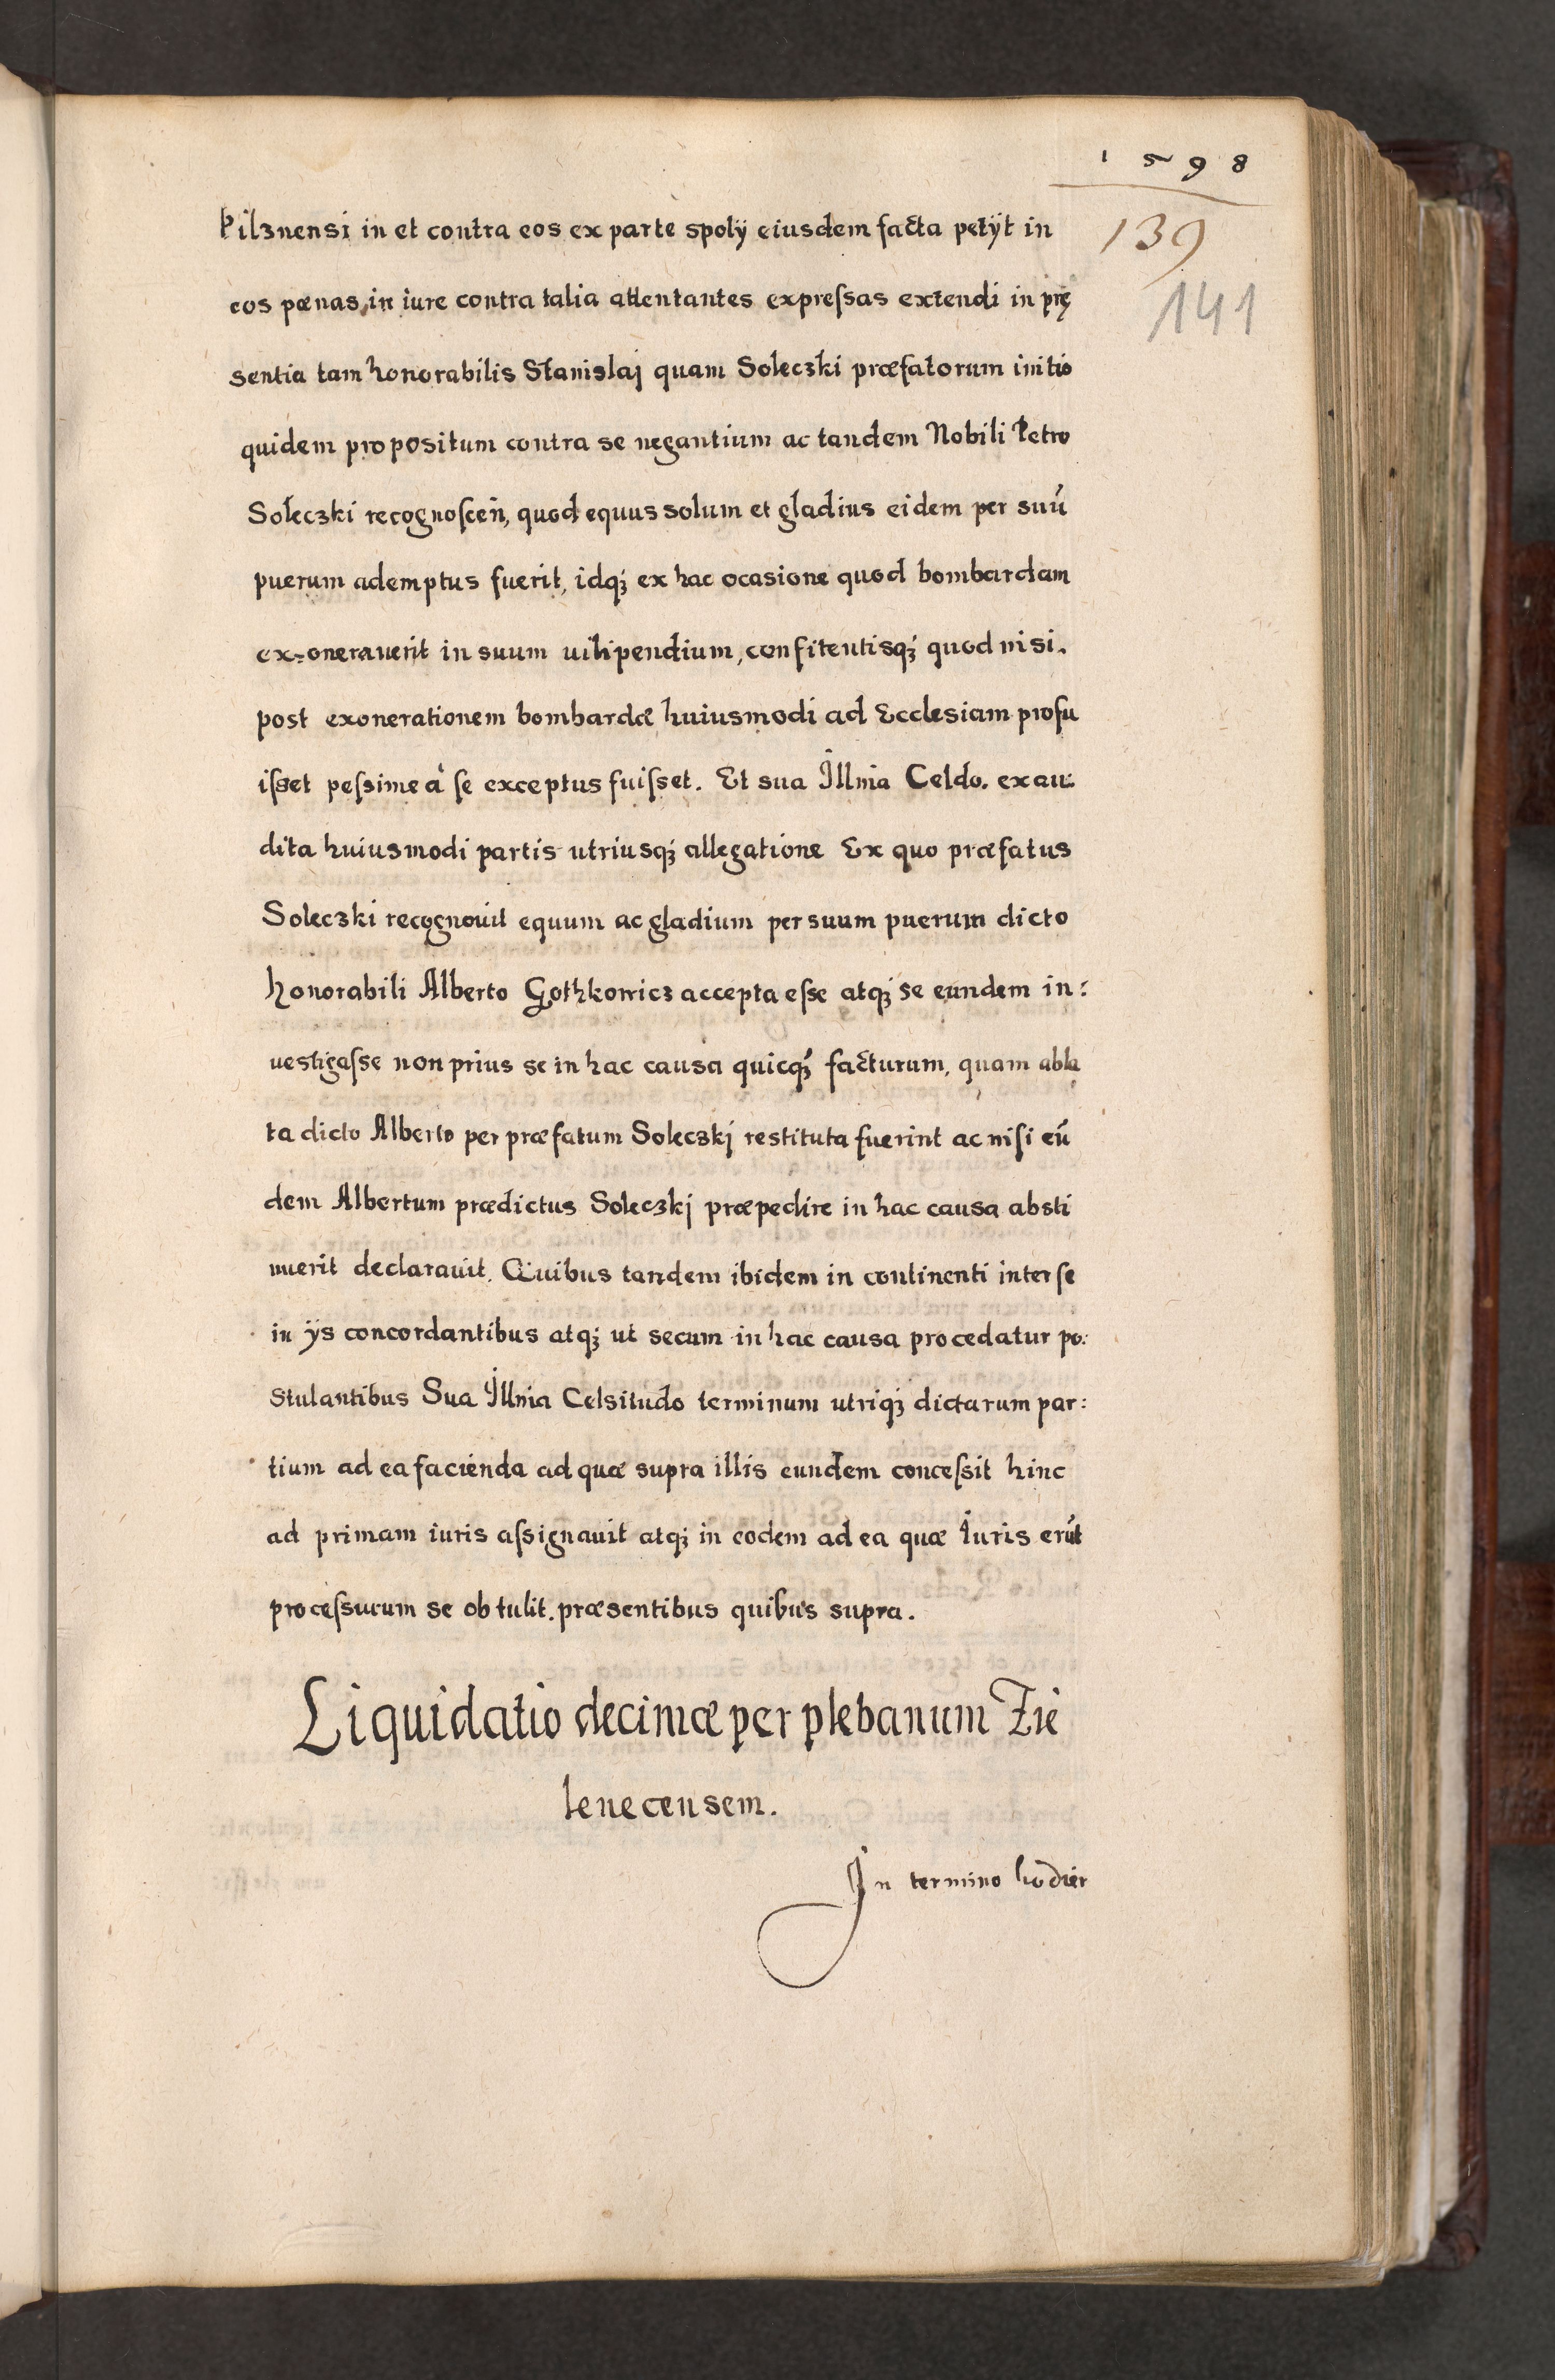 1598
139
141
Pilznensi in et contra eos ex parte spolÿ eiusdem facta petÿt in
eos pœnas, in iure contra talia attentantes expreſsas extendi in prę
sentia tam honorabilis Stanislaj quam Soleczki præfatorum initio
quidem propositum contra se negantium ac tandem Nobili Petro
Soleczki recognoſceñ, quod equus solum et gladius eidem per suū
puerum ademptus fuerit, idqȝ ex hac ocasione quod bombardam
ex=onerauerit in suum uilipendium, confitentisqȝ quod nisi.
post exonerationem bombardæ huiusmodi ad Ecclesiam profu
iſset peſsime à se exceptus fuiſset. Et sua Illmа Celdo. exau:
dita huiusmodi partis utriusqȝ allegatione Ex quo præfatus
Soleczki recognouit equum ac gladium per suum puerum dicto
honorabili Alberto Gothkowicz accepta eſse atqȝ se eundem in:
uestigaſse non prius se in hac causa quicqȝ facturum, quam abla
ta dicto Alberto per præfatum Soleczkj restituta fuerint ac niſi eū
dem Albertum prædictus Soleczkj præpedire in hac causa absti
nuerit declarauit. Quibus tandem ibidem in continenti inter se
in ÿs concordantibus atqȝ ut secum in hac causa procedatur po:
stulantibus Sua Illmа Celsitudo terminum utriqȝ dictarum par:
tium ad ea facienda ad quæ supra illis eundem conceſsit hinc
ad primam iuris aſsignauit atqȝ in eodem ad ea quæ Iuris erūt
proceſsurum se obtulit. præsentibus quibus supra.
Liquidatio decimæ per plebanum Zie
lenecensem.
In termino hodier